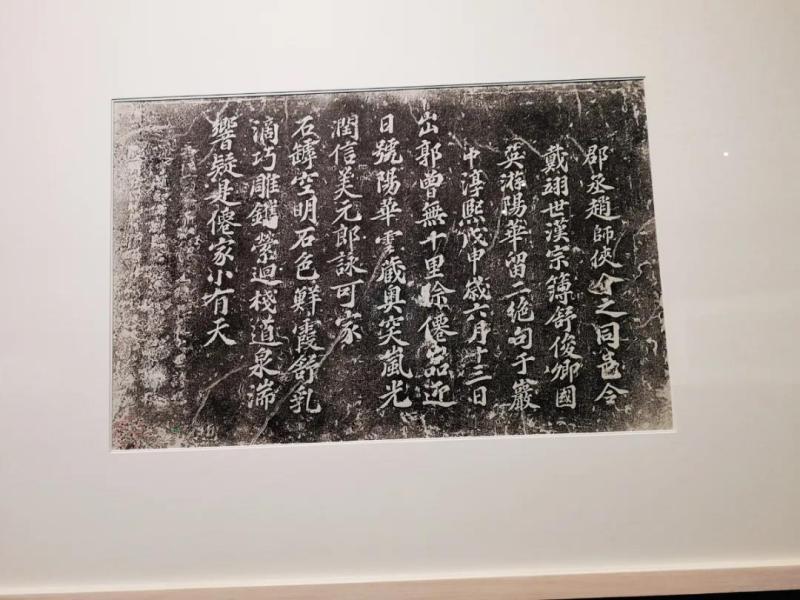 郡丞趙師俠介之同邑令
戴翊世漢宗簿舒俊卿國
英游陽華留二絕句于巖
中淳熙戊申歲六月十三日
出郭曾無十里餘僊品近
日號陽華雲藏奥突嵐光
潤信美元郎詠可家
石罅空明石色鮮霞舒乳
滴巧雕鐫縈迴棧道泉湍
響疑是僊家小有天